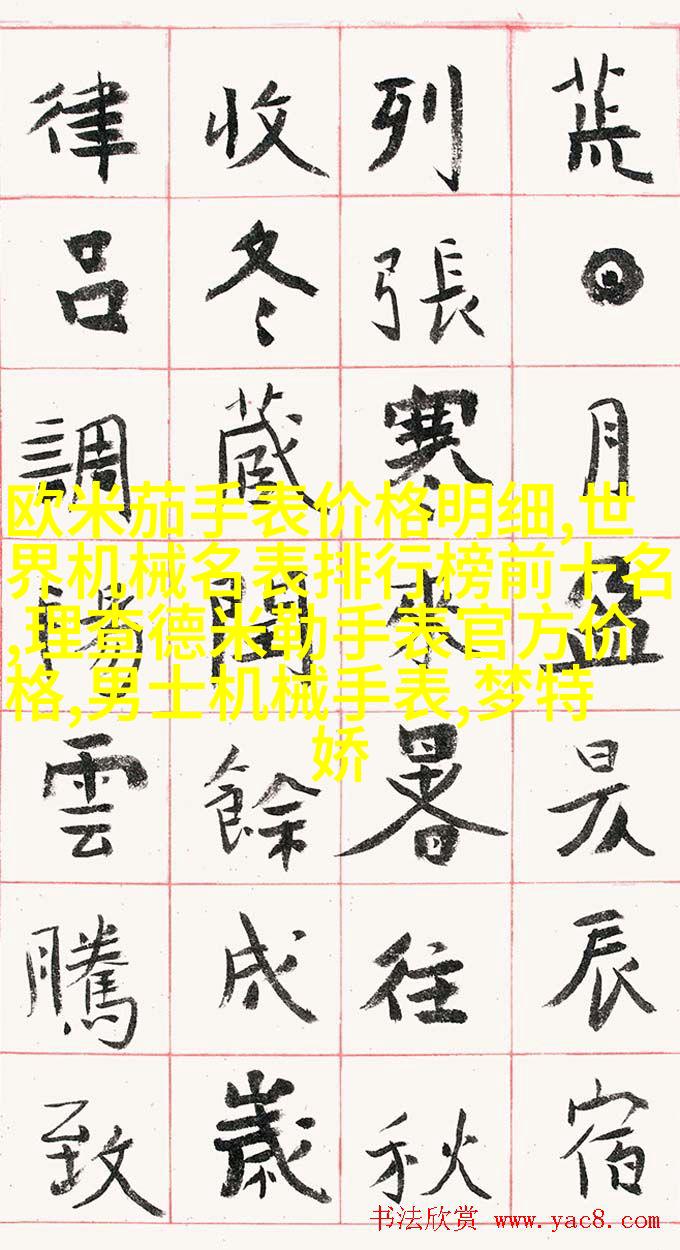 荒日月盈昃辰宿
列張寒來暑往秋
收冬藏閏餘成歲
律吕調陽雲騰致
欧米茄手表价格明细,世
界机械名表排行榜前十名
,理查德米勒手表官方价
格,男士机械手表,梦特
娇
书法欣赏 www.yac8.com